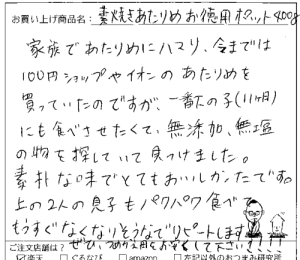 お買い上げ商品名: 素焼きあたりめお徳用ポット400g
家族であたりめにハマり、今までは
100円ショップやイオンのあたりめを
買っていたのですが、一番下の子(11ヶ月)
にも食べさせたくて、無添加、無塩
の物を探していて見つけました。
素朴な味でとてもおいしかったです。
上の2人の息子もパクパク食べて
もうすぐなくなりそうなのでリピートします
ご注文店舗は? ぜひ、つめかえ用も
楽天 ぐるなび amazon 左記以外のおつまみ研究所